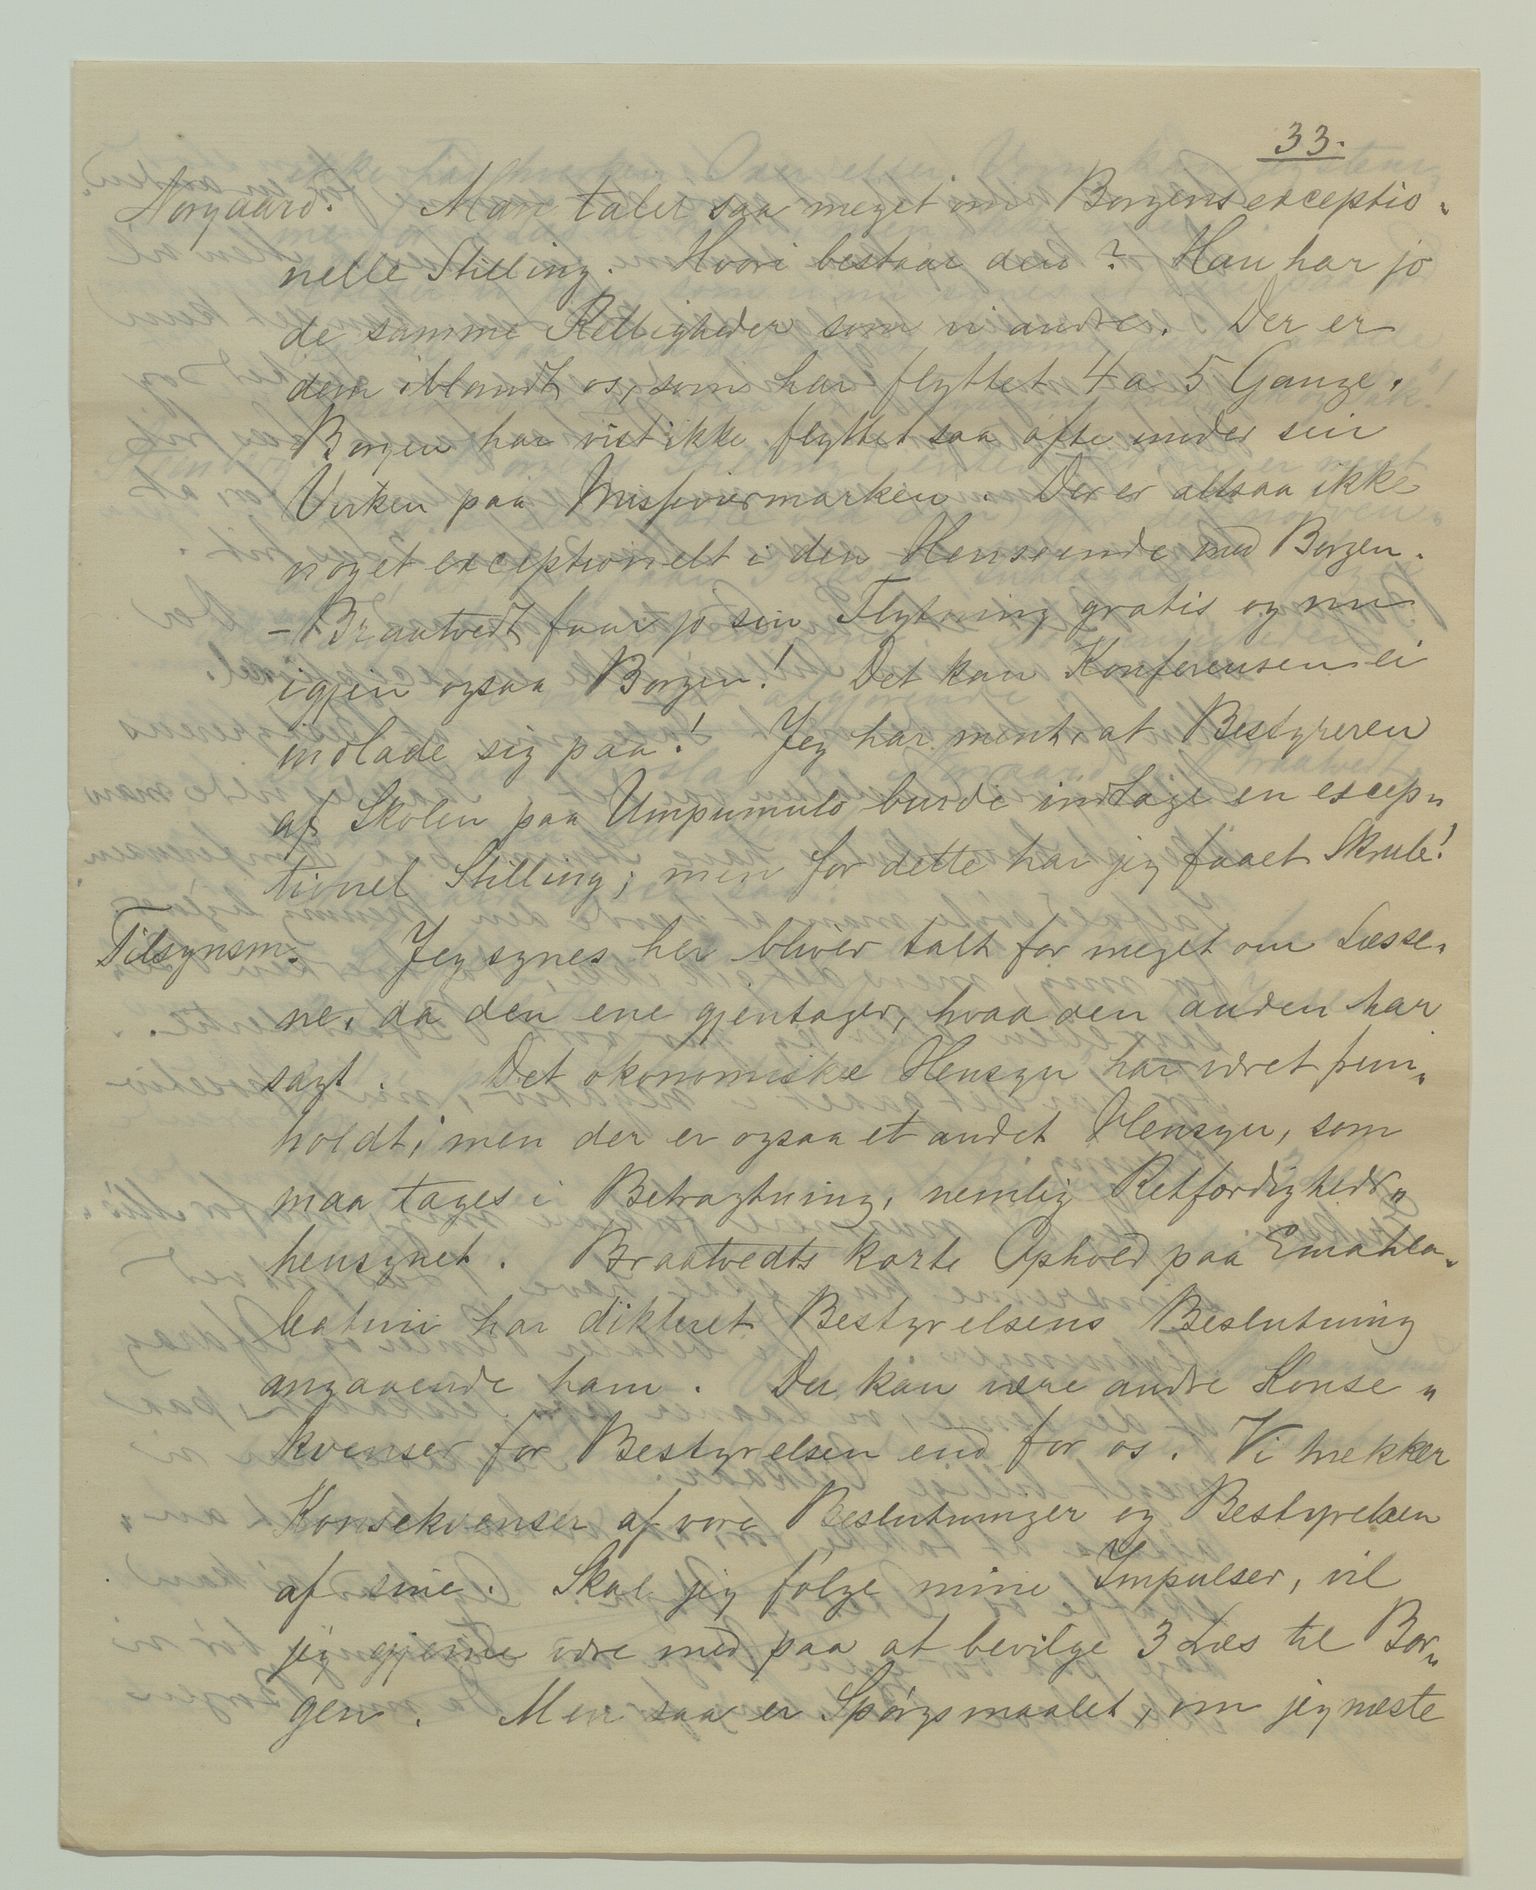 33.
Norgaard. Man taler saa meget om Borgens exceptio„
nelle Stilling. Hvori bestaar den? Han har jo
de samme Rettigheder som vi andre. Der er
dem iblandt os, som har flyttet 4 a 5 Gange.
Borgen har vist ikke flyttet saa ofte under sin
Virken paa Missionsmarken. Der er altsaa ikke
noget exceptionelt i den Henseende med Borgen.
– Braatvedt faar jo sin Flytning gratis og nu
igjen ogsaa Borgen! Det kan Konferensen ei
indlade sig paa! Jeg har ment, at Bestyreren
af Skolen paa Umpumulo burde indtage en excep„
tionel Stilling; men for dette har jeg faaet Skrub!
Tilsynsm. Jeg synes her bliver talt for meget om Læsse„
ne, da den ene gjentager, hvaa den anden har
sagt. Det økonomiske Hensyn har været frem„
holdt; men der er ogsaa et andet Hensyn, som
maa tages i Betragtning, nemlig Retfærdigheds„
hensynet. Braatvedts korte Ophold paa Emahla„
batini har dikteret Bestyrelsens Beslutning
angaaende ham. Der kan være andre Konse„
kvenser for Bestyrelsen end for os. Vi trækker
Konsekvenser af vore Beslutninger og Bestyrelsen
af sine. Skal jeg følge mine Impulser, vil
jeg gjerne være med paa at bevilge 3 Læs til Bor„
gen. Men saa er Spørgsmaalet, om jeg næste